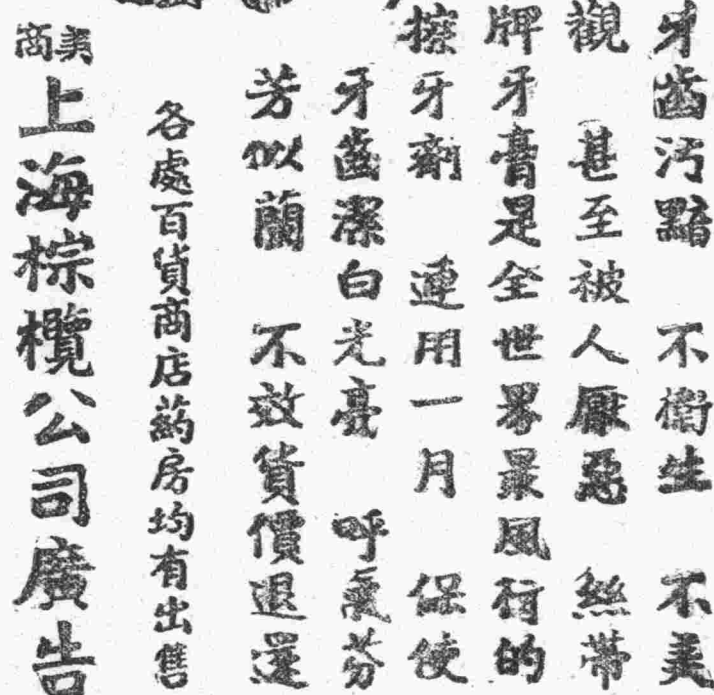 牙齒汚黯　不衛生　不美
觀　甚至被人厭惡　絲帶
牌牙膏是全世界最風行的
擦牙劑　連用一月　保使
牙齒潔白光亮　呼氣芬
芳似蘭　不效貨價退還
各處百貨商店葯房均有出售
美商
上海棕欖公司廣告